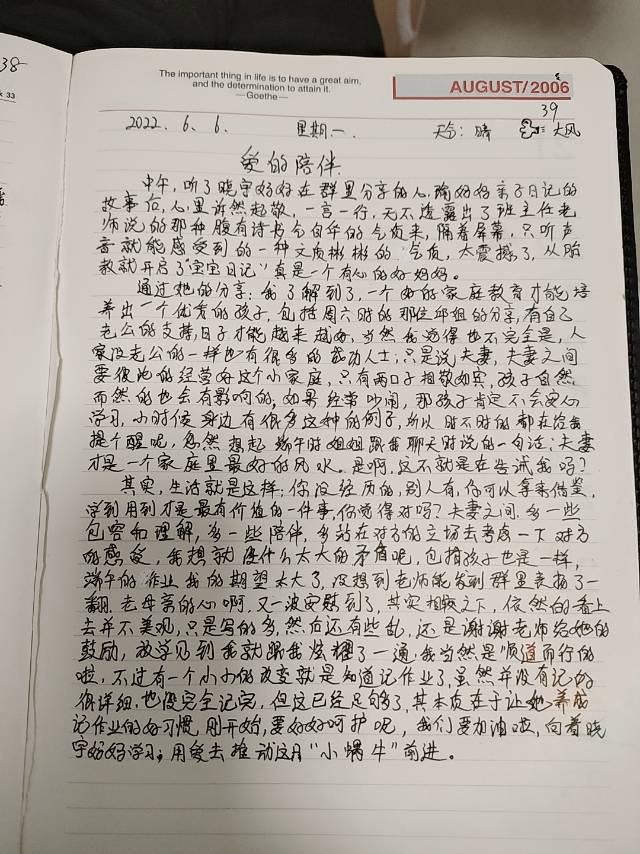 38
k 33
The important thing in life is to have a great aim,
and the determination to attain it.
—Goethe—
AUGUST/2006
39
2022. 6. 6. 星期一. 天气: 晴 大风
爱的陪伴
中午,听了晓宇妈妈在群里分享的人,瑜妈妈亲子日记的
故事后,心里诉然起敬,一言一行,无不透露出了班主任老
师说的那种腹有诗书气自华的气质来,隔着屏幕,只听声
音就能感受到的一种文质彬彬的气质,太震撼了,从胎
教就开启了"宝宝日记"真是一个有心的好妈妈。
通过她的分享:我了解到了,一个好的家庭教育才能培
养出一个优秀的孩子,包括周六时的那位邱姐的分享,有自己
老公的支持,日子才能越来越好,当然我觉得也不完全是,人
家没老公的一样也有很多的成功人士;只是说夫妻,夫妻之间
要彼此的经营好这个小家庭,只有两口子相敬如宾,孩子自然
而然的也会有影响的,如果经常吵闹,那孩子肯定不会安心
学习,小时候身边有很多这种的例子,所以时不时的都在给我
提个醒呢,忽然想起端午时姐姐跟我聊天时说的一句话:夫妻
才是一个家庭里最好的风水。是啊,这不就是在告诫我吗?
其实,生活就是这样,你没经历的,别人有,你可以拿来借鉴,
学到用到才是最有价值的一件事,你觉得对吗?夫妻之间,多一些
包容和理解,多一些陪伴,多站在对方的立场去考虑一下对方
的感受,我想就没什么太大的矛盾呢,包括孩子也是一样,
端午的作业我的期望太大了,没想到老师能发到群里表扬了一
翻,老母亲的心啊,又一波安慰到了,其实相较之下,依然的看上
去并不美观,只是写的多,然后还有些乱,还是谢谢老师给她的
鼓励,放学见到我就跟我炫耀了一通,我当然是"顺道"而行的
啦,不过有一个小小的改变就是知道记作业了,虽然并没有记的
很详细,也没完全记完,但这已经足够了,其本质在于让她养成
记作业的好习惯,刚开始,要好好呵护呢,我们要加油啦,向着晓
宇妈妈学习;用爱去推动这只"小蜗牛"前进。